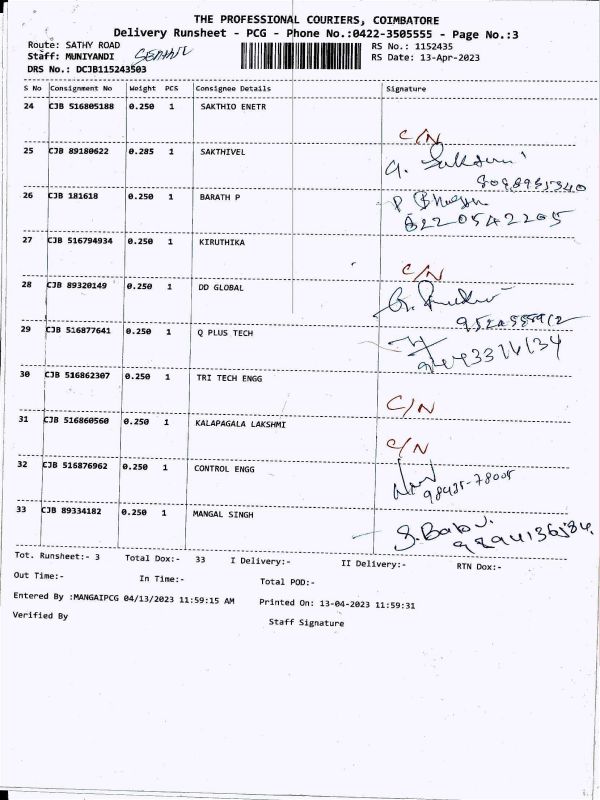 THE PROFESSIONAL COURIERS, COIMBATORE
Delivery Runsheet - PCG - Phone No.:0422-3505555 - Page No.:3
Route: SATHY ROAD RS No.: 1152435
Staff: MUNIYANDI RS Date: 13-Apr-2023
DRS No.: DCJB115243503
S No Consignment No Weight PCS Consignee Details Signature
24 CJB 516805188 0.250 1 SAKTHIO ENETR
C/N
25 CJB 89180622 0.285 1 SAKTHIVEL
26 CJB 181618 0.250 1 BARATH P
27 CJB 516794934 0.250 1 KIRUTHIKA
C/N
28 CJB 89320149 0.250 1 DD GLOBAL
29 CJB 516877641 0.250 1 Q PLUS TECH
30 CJB 516862307 0.250 1 TRI TECH ENGG
C/N
31 CJB 516860560 0.250 1 KALAPAGALA LAKSHMI
C/N
32 CJB 516876962 0.250 1 CONTROL ENGG
98425-78005
33 CJB 89334182 0.250 1 MANGAL SINGH
S. Babu.
9894136584.
Tot. Runsheet:- 3 Total Dox:- 33 I Delivery:- II Delivery:- RTN Dox:-
Out Time:- In Time:- Total POD:-
Entered By :MANGAIPCG 04/13/2023 11:59:15 AM Printed On: 13-04-2023 11:59:31
Verified By Staff Signature